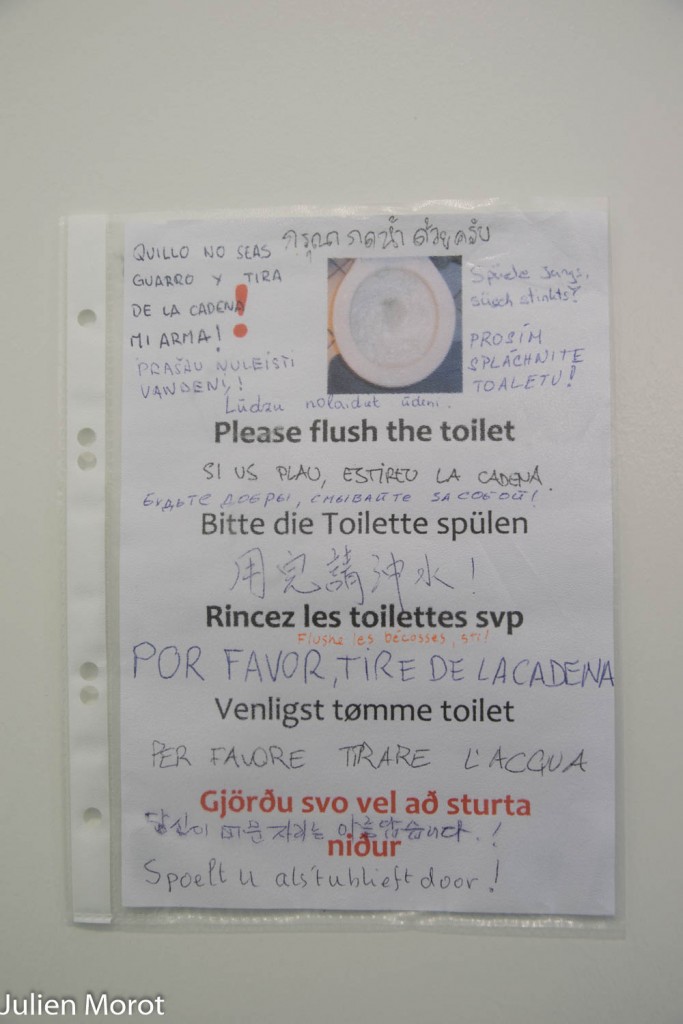 QUILLO NO SEAS
GUARRO Y TIRA
DE LA CADENA
MI ARMA!
กรุณากดน้ำ ด้วยครับ
PRAŠAU NULEISTI
VANDENĮ!
Spüele Jungs,
süsch stinkts?
PROSÍM
SPLÁCHNITE
TOALETU!
Lūdzu nolaidat ūdeni.
Please flush the toilet
SI US PLAU, ESTIREU LA CADENA.
БУДЬТЕ ДОБРЫ, СМЫВАЙТЕ ЗА СОБОЙ!
Bitte die Toilette spülen
用完請沖水!
Rincez les toilettes svp
Flushe les bécosses, sti!
POR FAVOR, TIRE DE LA CADENA
Venligst tømme toilet
PER FAVORE TIRARE L'ACQUA
Gjörðu svo vel að sturta
당신이 머문 자리는 아름답습니다.!
niður
Spoelt u alstublieft door!
Julien Morot